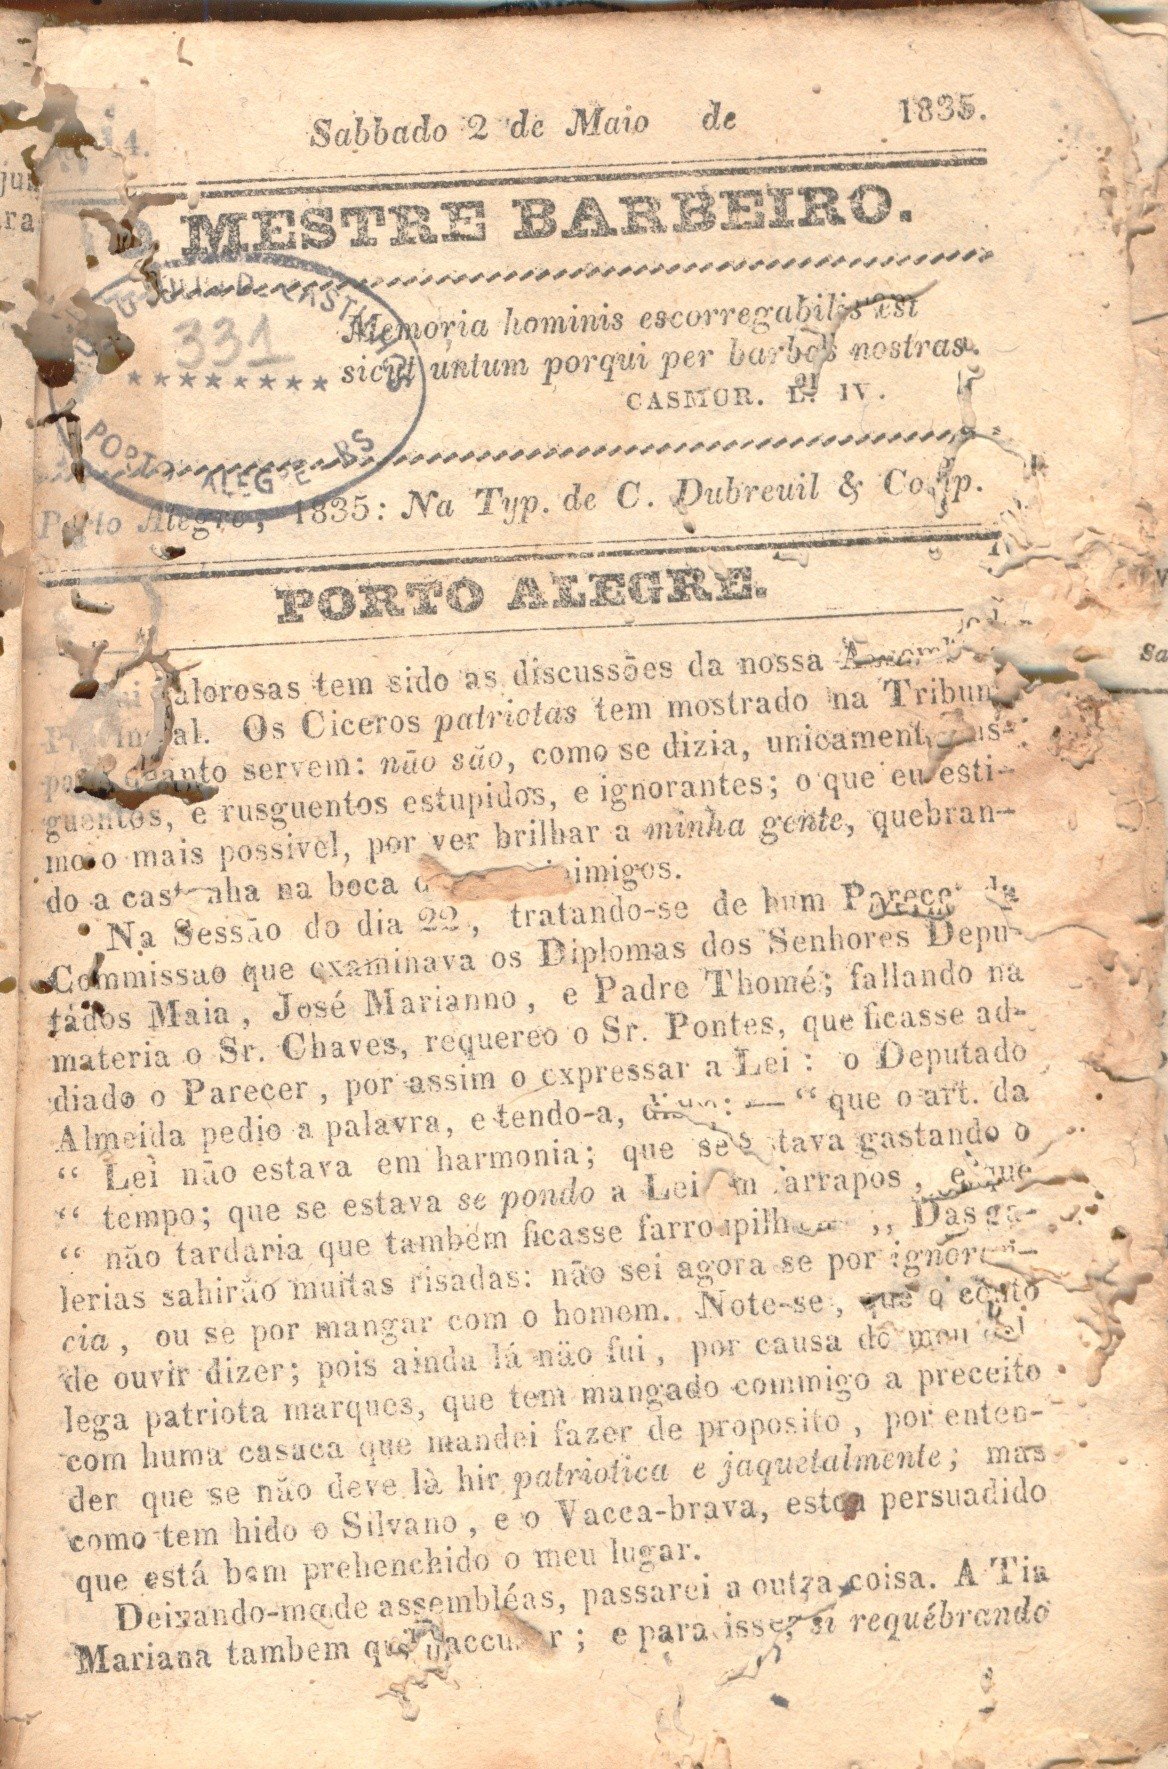 4.
Sabbado 2 de Maio de 1835.
O MESTRE BARBEIRO.
331
Memoria hominis escorregabilis est
sicut untum porqui per barbas nostras.
CASMUR. L. IV.
PORTO ALEGRE RS
Porto Alegre, 1835: Na Typ. de C. Dubreuil & Comp.
PORTO ALEGRE.
tem sido as discussões da nossa
Os Ciceros patriotas tem mostrado na Tribuna
quanto servem: não são, como se dizia, unicamente
guentos, e rusguentos estupidos, e ignorantes; o que eu esti-
mo o mais possivel, por ver brilhar a minha gente, quebran-
do a castanha na boca inimigos.
Na Sessão do dia 22, tratando-se de hum Parecer da
Commissao que examinava os Diplomas dos Senhores Depu-
tados Maia, José Marianno, e Padre Thomé; fallando na
materia o Sr. Chaves, requereo o Sr. Pontes, que ficasse ad-
diado o Parecer, por assim o expressar a Lei: o Deputado
Almeida pedio a palavra, e tendo-a, : — “ que o art. da
“ Lei não estava em harmonia; que se estava gastando o
“ tempo; que se estava se pondo a Lei em farrapos, e que
“ não tardaria que tambem ficasse ,, Das ga-
lerias sahirão muitas risadas: não sei agora se por ignoran-
cia, ou se por mangar com o homem. Note-se, que o conto
de ouvir dizer; pois ainda lá não fui, por causa do meu col-
lega patriota marques, que tem mangado commigo a preceito
com huma casaca que mandei fazer de proposito, por enten-
der que se não deve là hir patriotica e jaquetalmente; mas
como tem hido o Silvano, e o Vacca-brava, estou persuadido
que está bem prehenchido o meu lugar.
Deixando-me de assembléas, passarei a outra coisa. A Tia
Mariana tambem ; e para isso, si requébrando